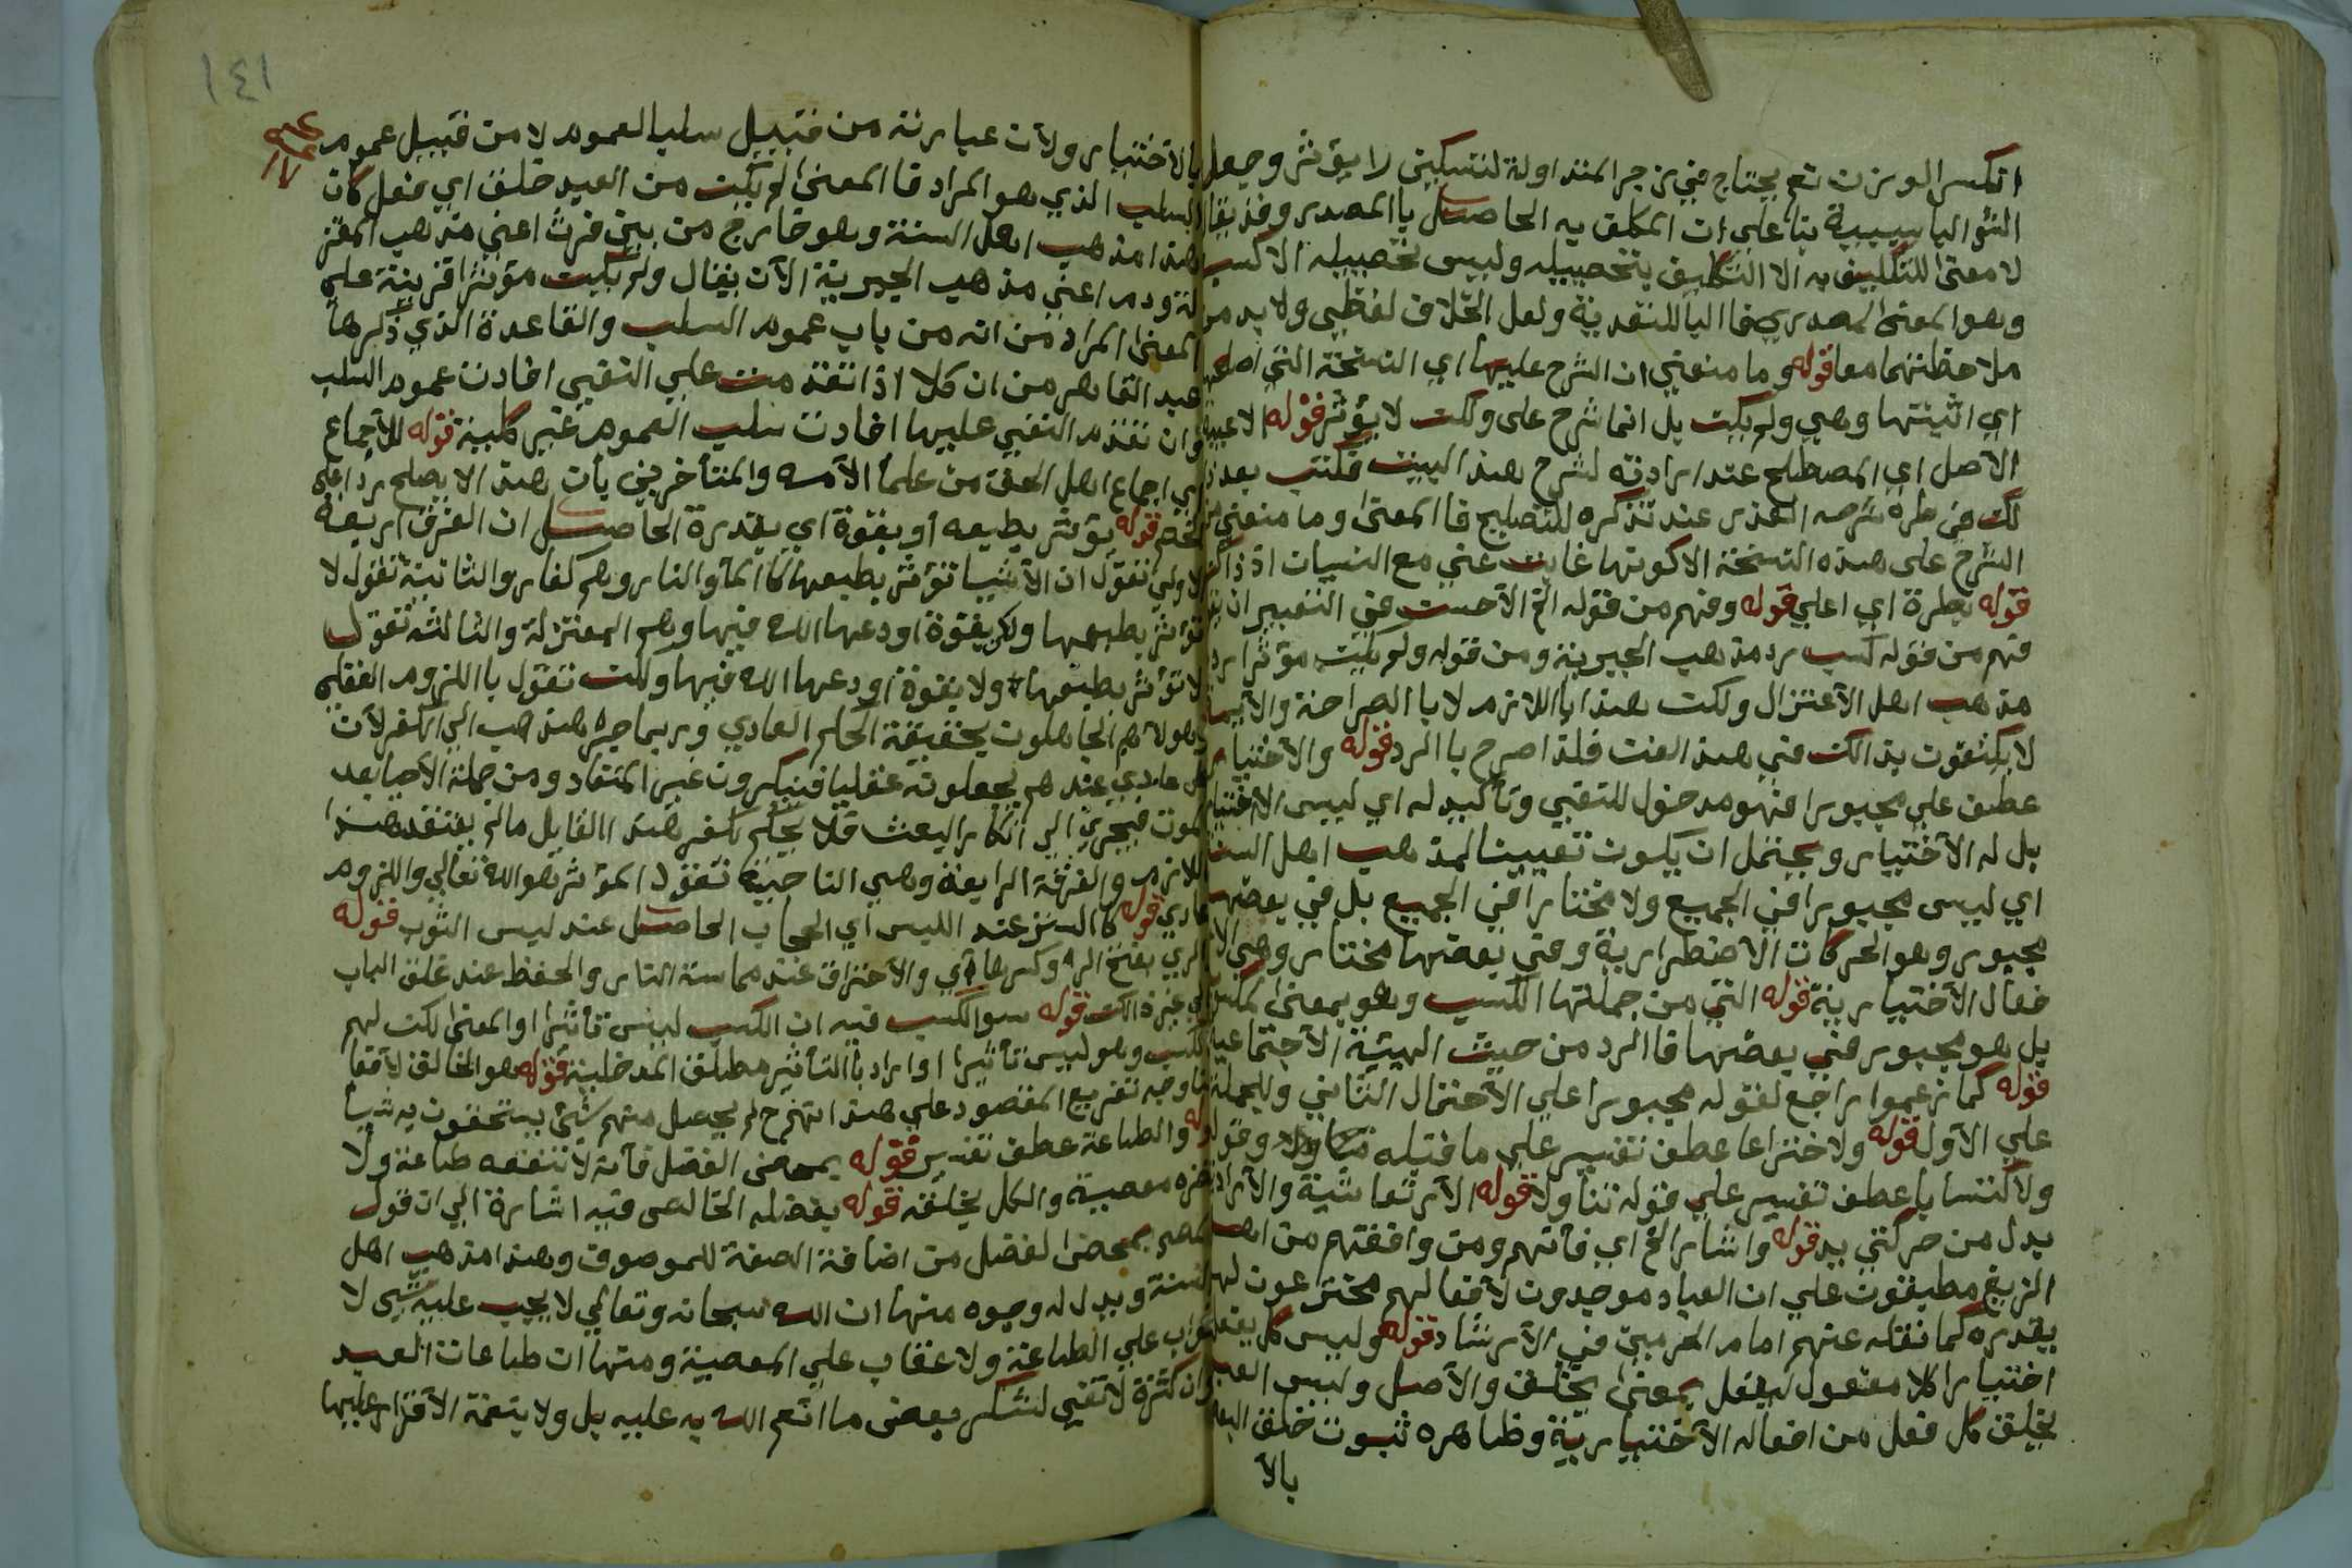 انكسر الوزن نعم يحتاج في زجر المتداولة لتسكين لا يؤثر وجعل
الشؤ الباسببية بنا علي ان المكلف به الحاصل باالمصدر وقد يقا
لا معنى للتكليف به الا التكليف بتحصيله وليس تحصيله الا كسب
وهو المعنى المصدري فاالباللتقدية ولعل الخلاف لفظي ولا بد من
ملاحظتهما معا قوله وما منعني ان اشرح عليها اي النسخة التي اصلحها
اي اثبتها وهي ولم يكن بل انما شرح على ولكن لا يؤثر قوله لاعيب
الاصل اي المصطلح عند ارادته لشرح هذا البيت فكتب بعد ذ
لك في طرة شرحه العذر عند تذكره للتصليح فاالمعنى وما منعني من
الشرح على هذه النسخة الا كونها غابت عني مع النسيان اذ ذاك
قوله بطرة اي اعلي قوله وفهم من قوله الخ الاحسن في التعبير ان يقو
فهم من قوله كسب رد مذهب الجبرية ومن قوله ولم يكن مؤثرا رد
مذهب اهل الاعتزال ولكن هذا بااللازم لا باالصراحة والائمة
لا يكتفون بذالك في هذا الفن فلذا صرح باالرد قوله والاختيار
عطف علي مجبورا فهو مدخول للنفي وتأكيد له اي ليس الاختيار
بل له الاختيار ويحتمل ان يكون تعيينا لمذهب اهل السنة
اي ليس مجبورا في الجميع ولا مختارا في الجميع بل في بعضها
مجبور وهو الحركات الاضطرارية وفي بعضها مختار وهي الا
فعال الاختيارية قوله التي من جملتها الكسب وهو بمعنى لكن
بل هو مجبور في بعضها فاالرد من حيث الهيئة الاجتماعية
قوله كما زعموا راجع لقوله مجبورا علي الاحتمال الثاني وللجملة
علي الاول قوله ولا اختراعا عطف تفسير علي ما قبله وقوله
ولاكتسابا عطف تفسير علي قوله تناولا قوله الارتعاشية والارادية
بدل من حركتي يد قوله واشار الخ اي فانهم ومن وافقهم من اهل
الزيغ مطبقون علي ان العباد موجدون لافعالهم مخترعون لها
بقدره كما نقله عنهم امام الحرمين في الارشاد قوله وليس كل يفعل
اختيارا كلا مفعول ليفعل بمعنى يخلق والاصل وليس العبد
يخلق كل فعل من افعاله الاختيارية وظاهره ثبوت خلق البعض
بالا
١٤١
بالاختيار ولان عبارته من قبيل سلب العموم لا من قبيل عموم
السلب الذي هو المراد فاالمعنى لم يكن من العبد خلق اي فعل كان
هذا مذهب اهل السنة وهو خارج من بين فرث اعني مذهب المعتز
لة ودم اعني مذهب الجبرية الا ان يقال ولم يكن مؤثرا قرينة علي
المعنى المراد من انه من باب عموم السلب والقاعدة الذي ذكرها
عبد القاهر من ان كلا اذا تقدمت علي النفي افادت عموم السلب
وان تقدم النفي عليها افادت سلب العموم غير كلية قوله للاجماع
اي اجماع اهل الحق من علما الامه والمتأخرين بأن هذا لا يصلح ردا علي
الخصم قوله يؤثر بطبعه او بقوة اي بقدرة الحاصل ان الفرق اربعة
الاولي تقول ان الاشيا تؤثر بطبعها كاالمأ والنار وهم كفار والثانية تقول لا
تؤثر بطبعها ولكن بقوة اودعها الله فيها وهم المعتزلة والثالثه تقول
لا تؤثر بطبعها ولا بقوة اودعها الله فيها ولكن تقول بااللزوم العقلي
وهولاهم الجاهلون بحقيقة الحكم العادي وربما جره هذهب الي الكفر لان
كل عادي عندهم يجعلونه عقليا فينكرون غير المعتاد ومن جملة الاحيا بعد
الموت فيجري الي انكار البعث فلا يحكم بكفر هذا القايل مالم يعتقد هذا
اللازم والفرقة الرابعة وهي الناجية تقول المؤثر هو الله تعالي واللزوم
عادي قوله كاالستر عند اللبس اي الحجاب الحاصل عند لبس الثوب قوله
الري بفتح الراء وكسرها اي والاحتراق عند مماسة النار والحفظ عند غلق الباب
اي غير ذالك قوله سو الكسب فيه ان الكسب ليس تأثيرا او المعنى لكن لهم
كسب وهو ليس تأثيرا او اراد باالتأثير مطلق المدخلية قوله هو الخالق لافعا
لنا وجه تفريع المقصود علي هذا انهم ح لم يحصل منهم شئ يستحقون به شيأ
قوله والطاعة عطف تفسير قوله بمحض الفضل فأنه لا تنفعه طاعة ولا
تضره معصية والكل بخلقه قوله بفضله الخالص فيه اشارة الي ان قول
المص بمحض الفضل من اضافة الصفة للموصوف وهذا مذهب اهل
السنة ويدل له وجوه منها ان الله سبحانه وتعالي لا يجب عليه شي لا
ثواب علي الطاعة ولا عقاب علي المعصية ومنها ان طاعات العبد
وان كثرة لا تفي لشكر بعض ما انعم الله به عليه بل ولا بنعمة الاقدار عليها